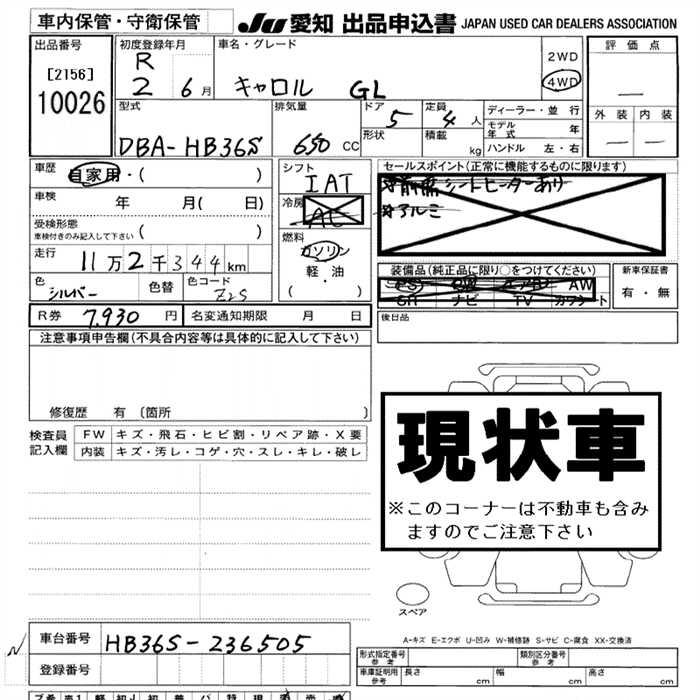 車内保管・守衛保管
JU 愛知 出品申込書 JAPAN USED CAR DEALERS ASSOCIATION
出品番号
[2156]
10026
初度登録年月
R
2 6月
車名・グレード
キャロル GL
2WD
4WD
評価点
外装 内装
型式
DBA-HB36S
排気量
650 CC
ドア 5
形状
定員 4人
積載 kg
ディーラー・並行
モデル年式 年
ハンドル 左・右
車歴
自家用・( )
車検
年 月( 日)
受検形態
車検付きのみ記入して下さい ( )
走行
11万2千344km
色
シルバー
色替
色コード
Z2S
シフト
IAT
冷房
AC
燃料
ガソリン
軽・油
( ・ )
セールスポイント(正常に機能するものに限ります)
シートヒーターあり
アルミ
装備品(純正品に限り○をつけてください)
PS PW エアB AW
SR ナビ TV カワシート
新車保証書
有・無
R券 7,930 円 名変通知期限 月 日
後日品
注意事項申告欄(不具合内容等は具体的に記入して下さい)
修復歴 有 〔箇所 〕
検査員
記入欄
FW キズ・飛石・ヒビ割・リペア跡・X要
内装 キズ・汚レ・コゲ・穴・スレ・キレ・破レ
現状車
※このコーナーは不動車も含み
ますのでご注意下さい
スペア
A-キズ E-エクボ U-凹み W-補修跡 S-サビ C-腐食 XX-交換済
車台番号 HB36S-236505
登録番号
形式指定番号
参考
類別区分番号
参考
車庫証明用
参考
長さ cm 幅 cm 高さ cm